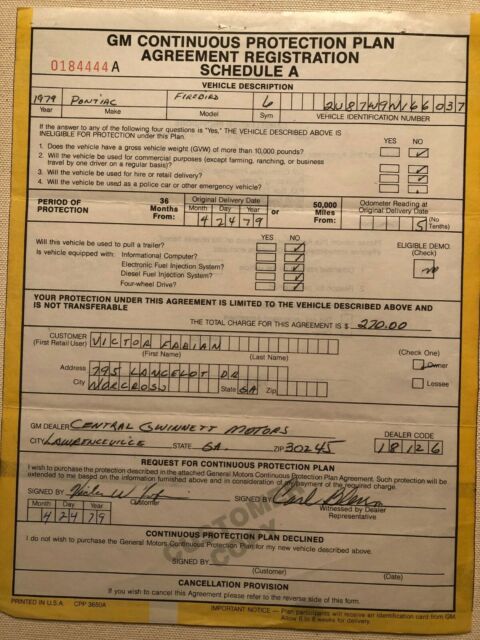 GM CONTINUOUS PROTECTION PLAN
AGREEMENT REGISTRATION
SCHEDULE A
0184444 A
VEHICLE DESCRIPTION
1979 PONTIAC FIREBIRD 6 2U87W9N166037
Year Make Model Sym VEHICLE IDENTIFICATION NUMBER
If the answer to any of the following four questions is "Yes," THE VEHICLE DESCRIBED ABOVE IS
INELIGIBLE FOR PROTECTION under this Plan. YES NO
1. Does the vehicle have a gross vehicle weight (GVW) of more than 10,000 pounds?
2. Will the vehicle be used for commercial purposes (except farming, ranching, or business
travel by one driver on a regular basis)?
3. Will the vehicle be used for hire or retail delivery?
4. Will the vehicle be used as a police car or other emergency vehicle?
PERIOD OF
PROTECTION
36
Months
From:
Original Delivery Date
Month Day Year
4 24 79
or
50,000
Miles
From:
Odometer Reading at
Original Delivery Date
5 (No
Tenths)
YES NO
Will this vehicle be used to pull a trailer?
Is vehicle equipped with: Informational Computer?
Electronic Fuel Injection System?
Diesel Fuel Injection System?
Four-wheel Drive?
ELIGIBLE DEMO.
(Check)
YOUR PROTECTION UNDER THIS AGREEMENT IS LIMITED TO THE VEHICLE DESCRIBED ABOVE AND
IS NOT TRANSFERABLE
THE TOTAL CHARGE FOR THIS AGREEMENT IS $ 270.00
CUSTOMER VICTOR FABIAN
(First Retail User) (First Name) (Last Name)
(Check One)
Owner
Lessee
Address 795 LANCELOT DR
City NORCROSS State GA Zip
GM DEALER CENTRAL GWINNETT MOTORS
DEALER CODE
18126
CITY LAWRENCEVILLE STATE GA ZIP 30245
REQUEST FOR CONTINUOUS PROTECTION PLAN
I wish to purchase the protection described in the attached General Motors Continuous Protection Plan Agreement. Such protection will be
extended to me based on the information furnished above and in consideration of my payment of the required charge.
SIGNED BY SIGNED BY
Customer Witnessed by Dealer
Representative
Month Day Year
4 24 79
CUSTOMER
COPY
CONTINUOUS PROTECTION PLAN DECLINED
I do not wish to purchase the General Motors Continuous Protection Plan for my new vehicle described above.
SIGNED BY
(Customer) (Date)
CANCELLATION PROVISION
If you wish to cancel this Agreement please refer to the reverse side of this form.
PRINTED IN U.S.A CPP 3650A
IMPORTANT NOTICE — Plan participants will receive an identification card from GM.
Allow 6 to 8 weeks for delivery.